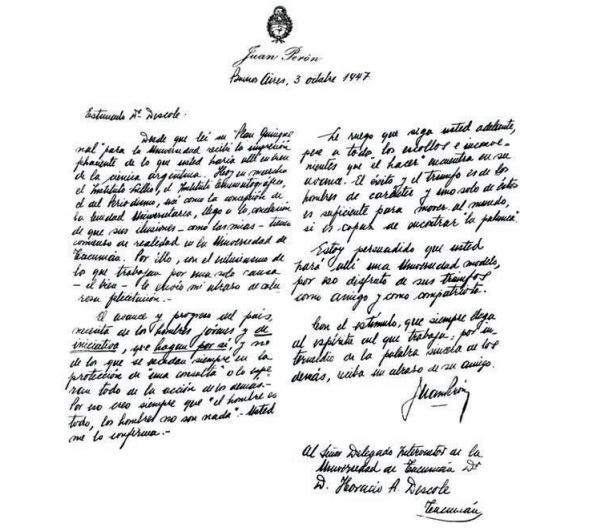 Juan Perón
Buenos Aires, 3 octubre 1947
Estimado Dr. Descole:
Desde que leí su "Plan Quinque
nal" para la Universidad recibí la impresión
placiente de lo que usted haría allí en bien
de la ciencia argentina. Hoy en marcha
el Instituto Lillo, el Instituto Cinematográfico,
el del Periodismo, así como la concepción de
la Ciudad Universitaria, llego a la conclusión
de que sus ilusiones - como las mías - tienen
comienzo de realidad en la Universidad de
Tucumán. Por ello, con el entusiasmo de
lo que trabajan por una sola causa
- el bien - le envío mi abrazo de calu
rosa felicitación.-
El avance y progreso del país,
necesita de los hombres jóvenes y de
iniciativa, que hagan por sí y no
de los que se escudan siempre en la
protección de "una consulta" o lo espe
ran todo de la acción de los demás.-
Por eso creo siempre que "el hombre es
todo, los hombres no son nada".- Usted
me lo confirma.-
Le ruego que siga usted adelante,
pese a todos los escollos e inconve-
nientes que "el hacer" encuentra en su
avance. El éxito y el triunfo es de los
hombres de carácter y uno solo de éstos
es suficiente para mover al mundo,
si es capaz de encontrar "la palanca".
Estoy persuadido que usted
hará allí una Universidad modelo,
por eso disfruto de sus triunfos
como amigo y como compatriota.
Con el estímulo, que siempre llega
al espíritu del que trabaja, por in-
termedio de la palabra sincera de los
demás, reciba un abrazo de su amigo.
Juan Perón
Al Señor Delegado Interventor de la
Universidad de Tucumán Dr.
D. Horacio A. Descole
Tucumán